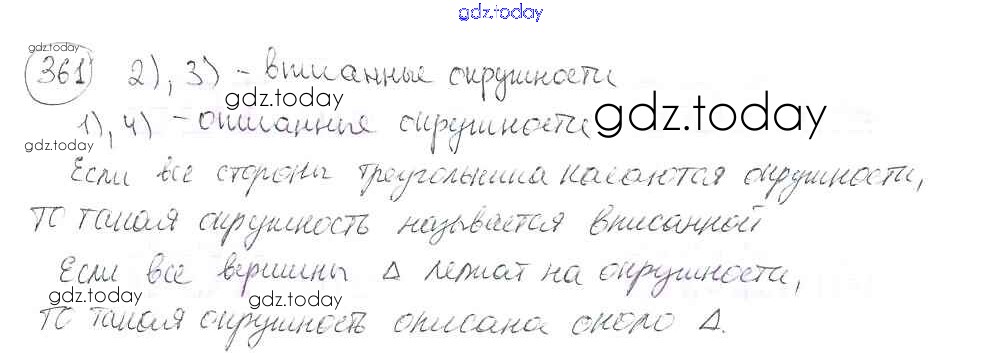 gdz.today
gdz.today
361 2), 3) – вписанные окружности
gdz.today
1), 4) – описанные окружности gdz.today
gdz.today
Если все стороны треугольника касаются окружности,
то такая окружность называется вписанной
Если все вершины Δ лежат на окружности,
gdz.today gdz.today
то такая окружность описана около Δ.